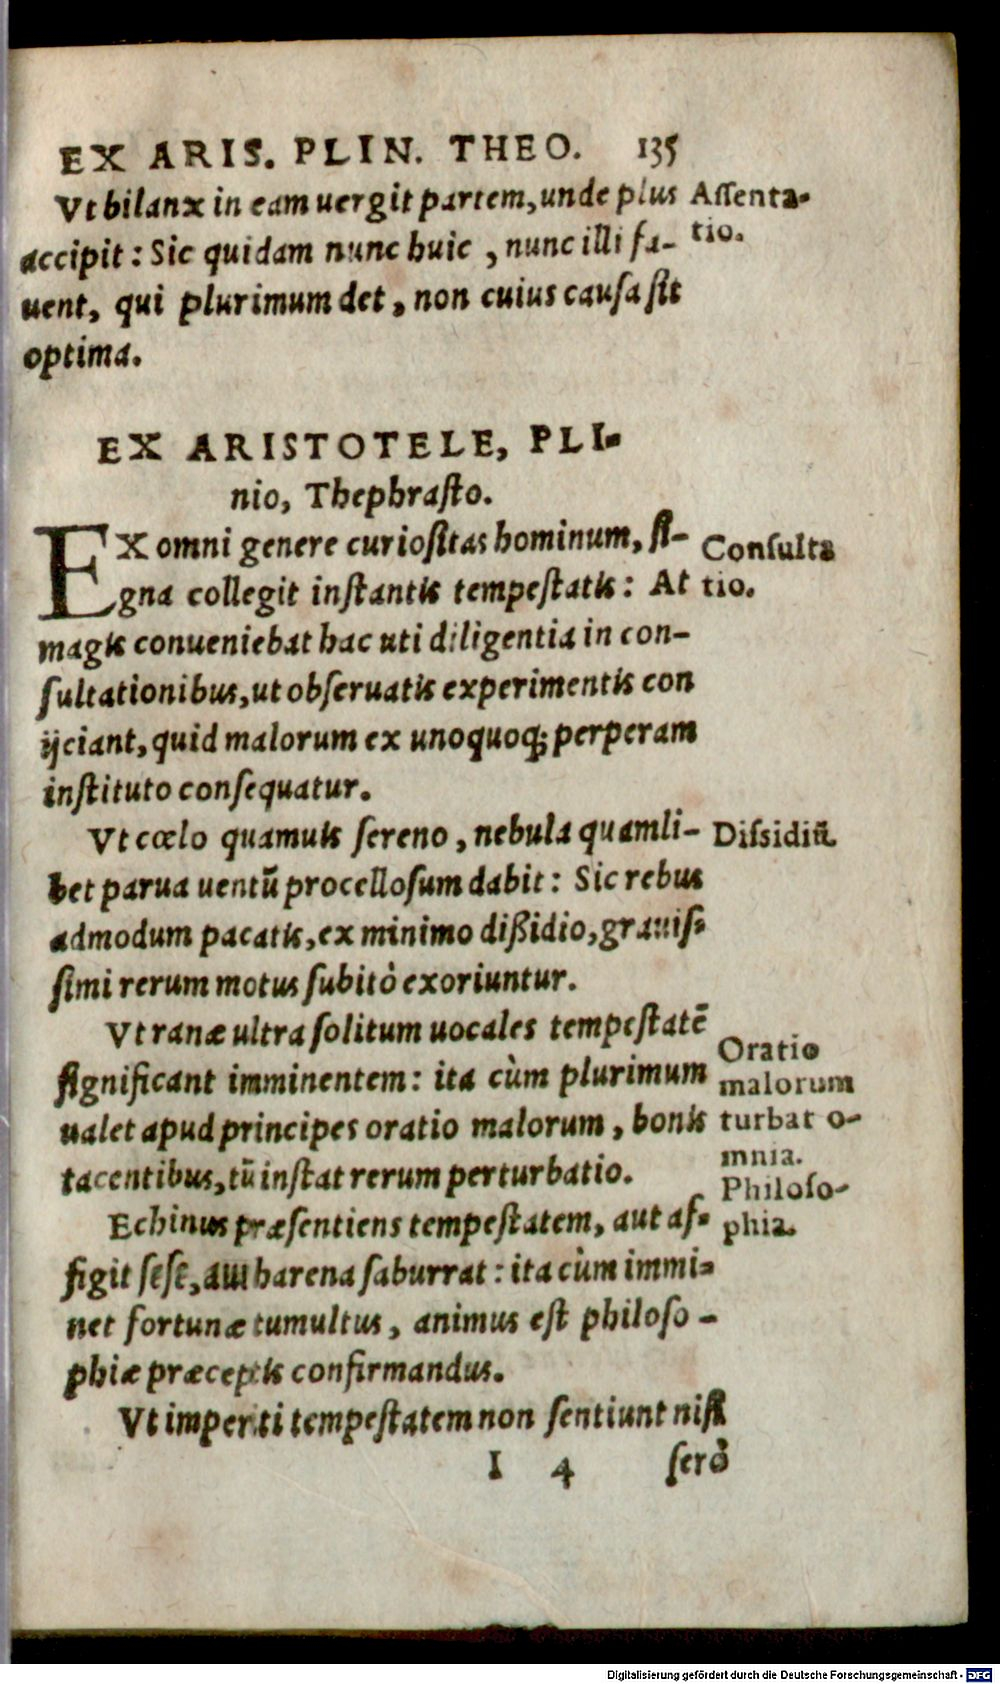 EX ARIS. PLIN. THEO. 135
Vt bilanx in eam uergit partem, unde plus
accipit: Sic quidam nunc huic, nunc illi fa-
uent, qui plurimum det, non cuius causa sit
optima.
Assenta-
tio.
EX ARISTOTELE, PLI-
nio, Thephrasto.
EX omni genere curiositas hominum, si-
gna collegit instantis tempestatis: At
magis conueniebat hac uti diligentia in con-
sultationibus, ut obseruatis experimentis con
ijciant, quid malorum ex unoquoq; perperam
instituto consequatur.
Consulta
tio.
Vt cœlo quamuis sereno, nebula quamli-
bet parua uentū procellosum dabit: Sic rebus
admodum pacatis, ex minimo dißidio, grauis-
simi rerum motus subitò exoriuntur.
Dissidiū.
Vt ranæ ultra solitum uocales tempestatē
significant imminentem: ita cùm plurimum
ualet apud principes oratio malorum, bonis
tacentibus, tū instat rerum perturbatio.
Oratio
malorum
turbat o-
mnia.
Echinus præsentiens tempestatem, aut af-
figit sese, aut harena saburrat: ita cùm immi-
net fortunæ tumultus, animus est philoso-
phiæ præceptis confirmandus.
Philoso-
phia.
Vt imperiti tempestatem non sentiunt nisi
I 4 serò
Digitalisierung gefördert durch die Deutsche Forschungsgemeinschaft - DFG